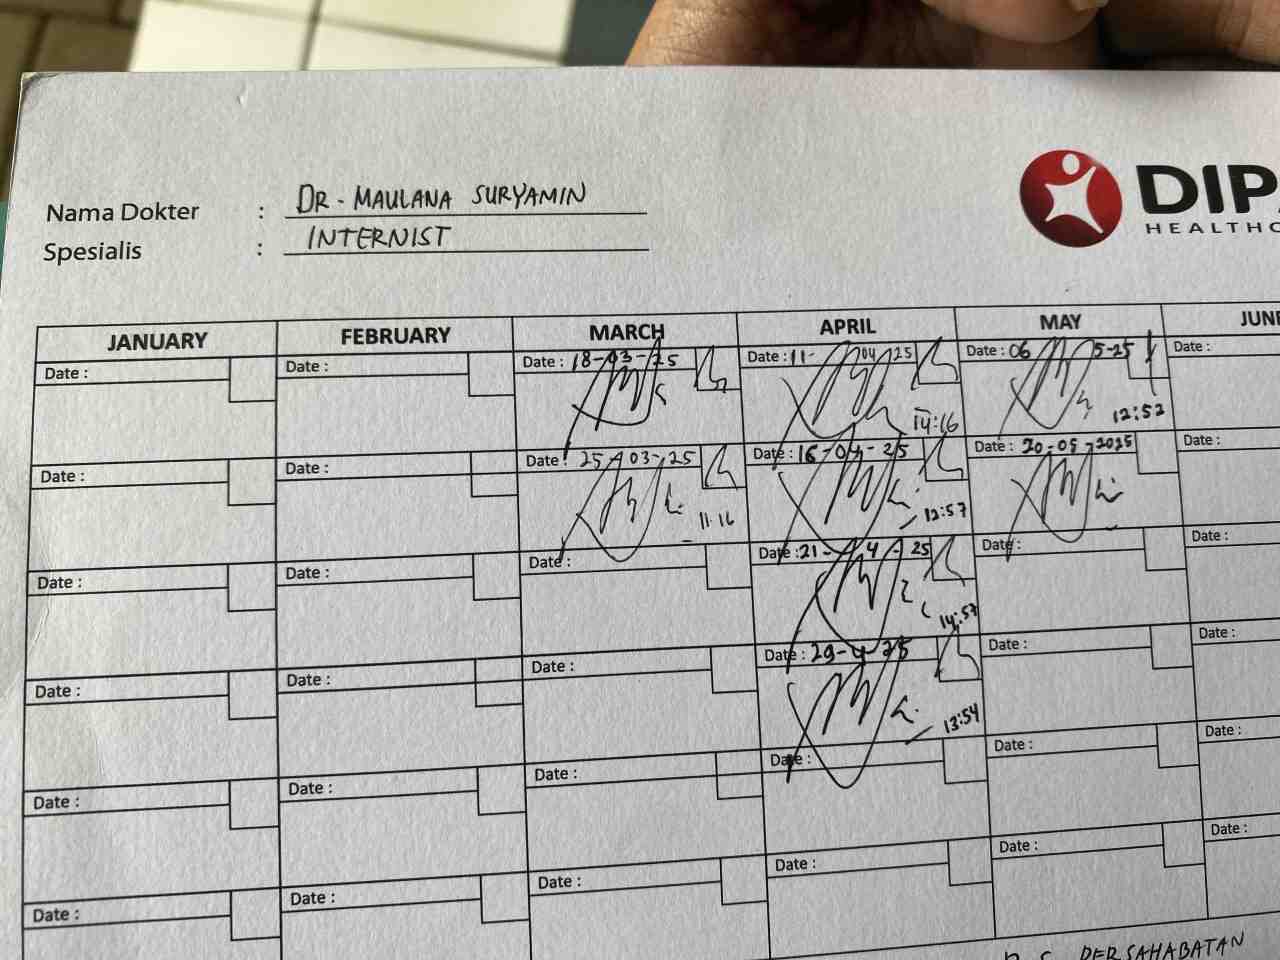 Nama Dokter : DR. MAULANA SURYAMIN
Spesialis : INTERNIST
DIP
HEALTHC
JANUARY FEBRUARY MARCH APRIL MAY JUNE
Date : Date : Date : 18-03-25 Date : 11-04 25 Date : 06 5-25 Date :
14:16 12:52
Date : Date : Date : 25-03-25 Date : 16-04-25 Date : 20-05-2025 Date :
11.16 12:57
Date : Date : Date : Date : 21-4-25 Date : Date :
14:57
Date : Date : Date : Date : 29-4-25 Date : Date :
13:54
Date : Date : Date : Date : Date : Date :
Date : Date : Date : Date : Date : Date :
PERSAHABATAN